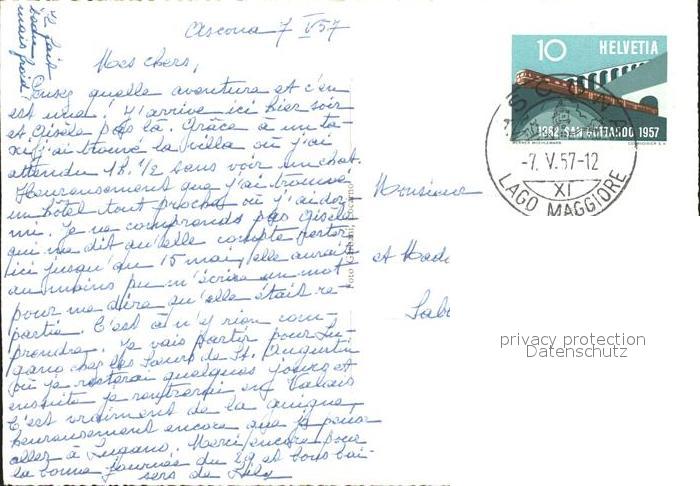 Ascona 7 V 57
Il fait
isolé
mais froid
Mes chers,
Pensez quelle aventure et c'en
est une! J'arrive ici hier soir
et Gisèle pas là. Grâce à un ta-
xi j'ai trouvé la villa où j'ai
attendu 1h. 1/2 sans voir un chat.
Heureusement que j'ai trouvé
un hôtel tout proche où j'ai dor-
mi. Je ne comprends pas Gisèle
qui me dit qu'elle compte rester
ici jusqu'au 15 mai, elle aurait
au moins pu m'écrire un mot
pour me dire qu'elle était re-
partie. C'est à n'y rien com-
prendre. Je vais partir pour Lu-
gano chez les Sœurs de St. Augustin
où je resterai quelques jours et
ensuite je rentrerai en Valais
C'est vraiment de la guigne,
heureusement encore que je peux
aller à Lugano. Merci encore pour
la bonne journée du 29 et bons bai-
sers de Lily
Foto Locarno
Monsieur
et Mada
10 HELVETIA
1882 SAN GOTTARDO 1957
ASCONA
-7. V. 57-12
XI
LAGO MAGGIORE
privacy protection
Datenschutz